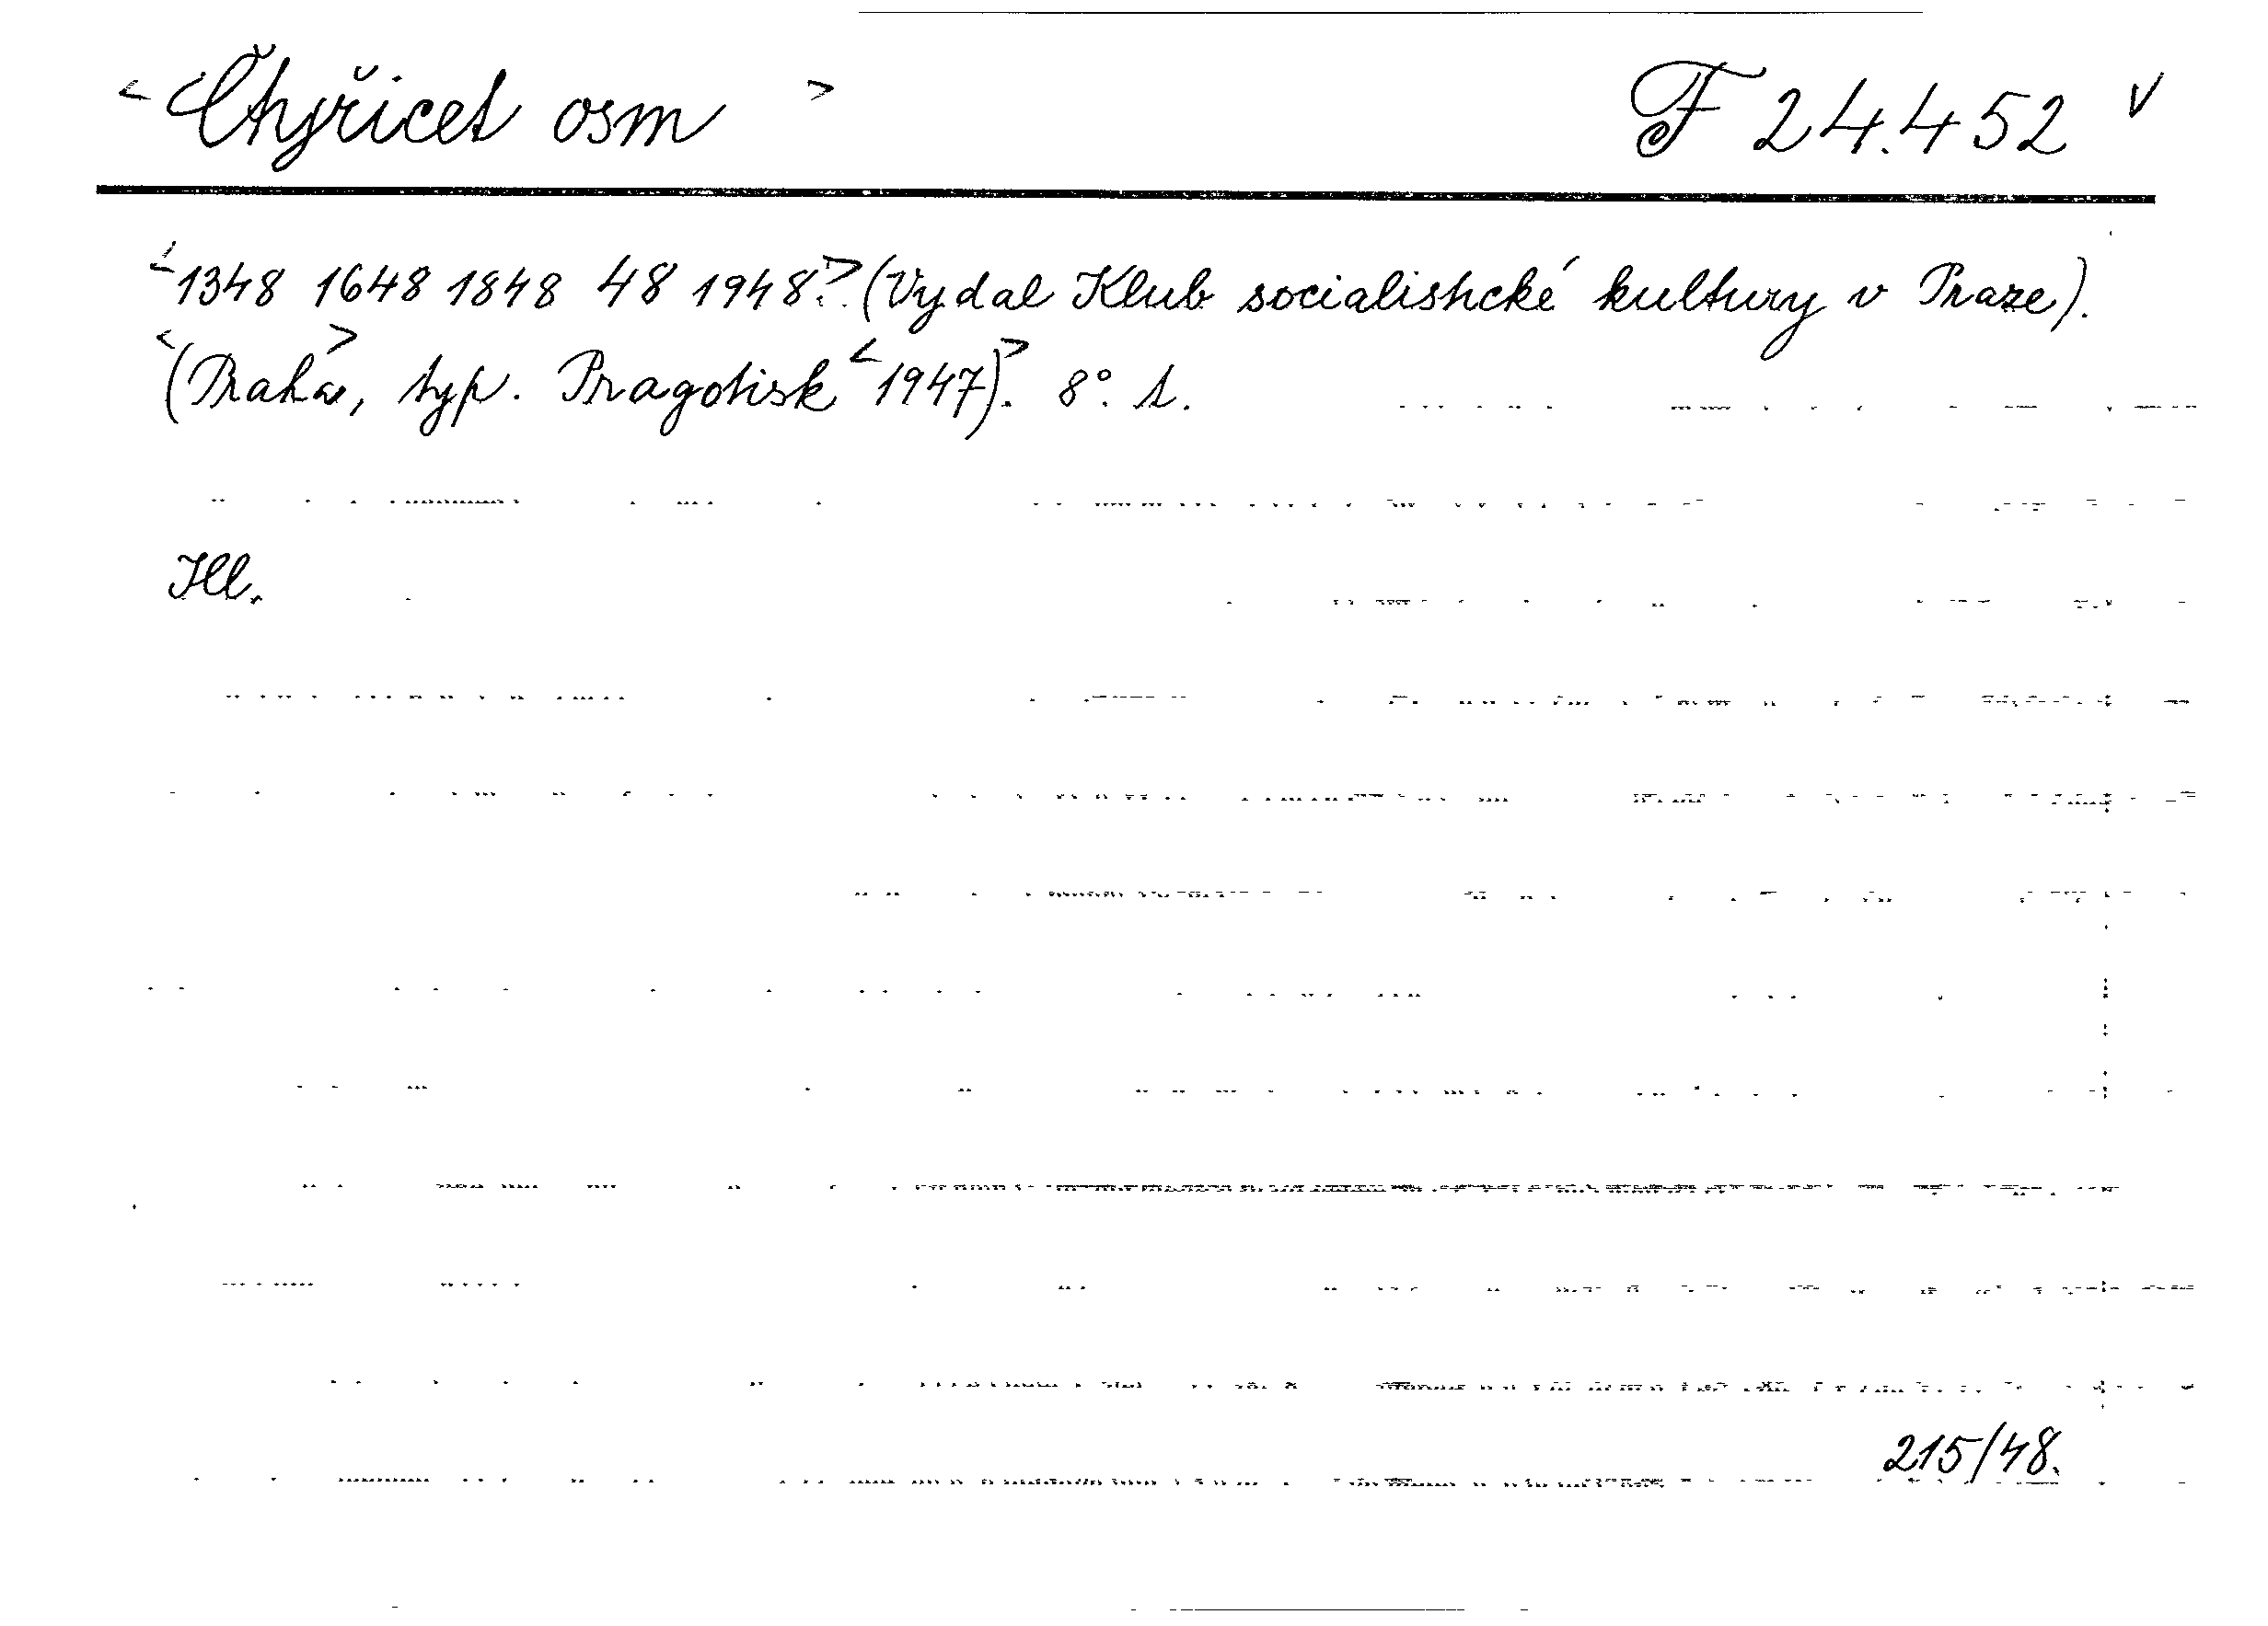 <Čtyřicet osm> F 24.452 v
<1348 1648 1848 48 1948>. (Vydal Klub socialistické kultury v Praze).
<(Praha>, typ. Pragotisk <1947)>. 8°. 1.
Ill.
215/48.